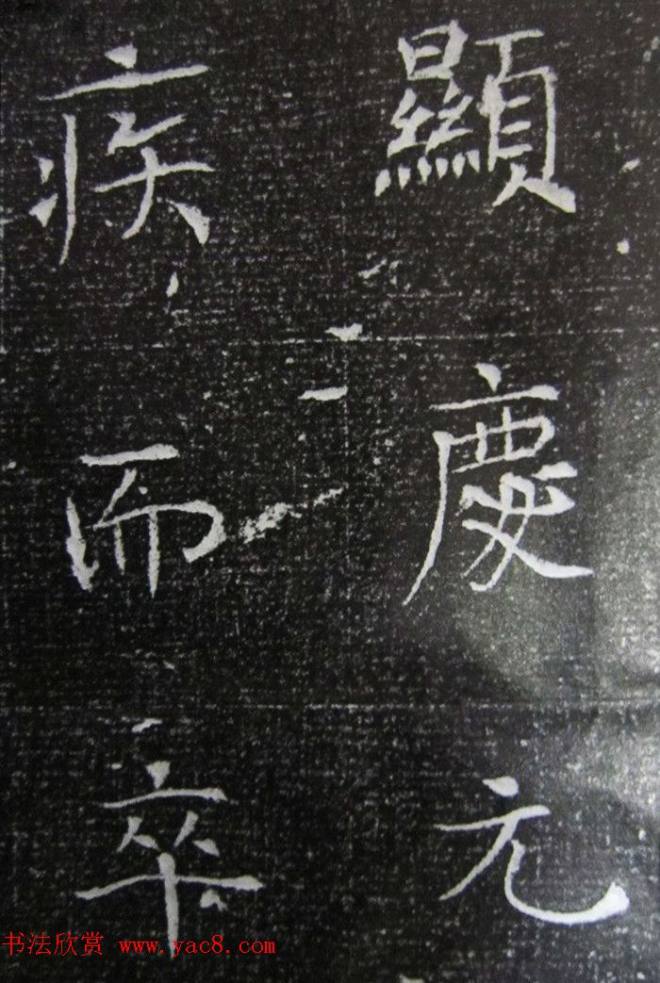 顯慶元
疾而卒
书法欣赏 www.yac8.com